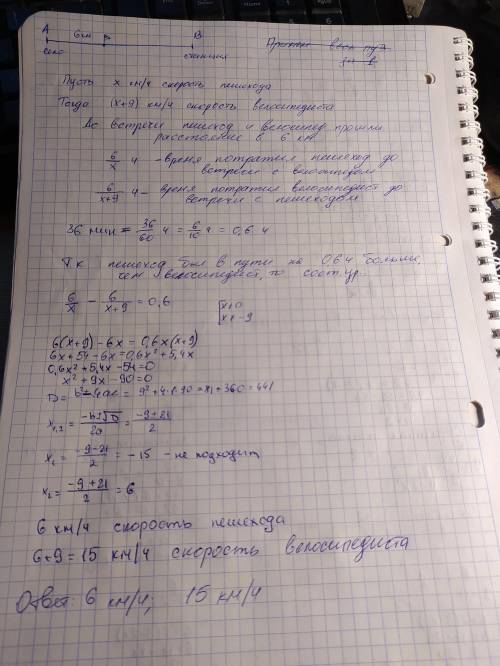 A 6км B
село станция
Пусть x км/ч скорость пешехода
Тогда (x+9) км/ч скорость велосипедиста
До встречи пешеход и велосипед прошли
расстояние в 6 км
6/x ч - время потратил пешеход до
встречи с велосипедом
6/(x+9) ч - время потратил велосипедист до
встречи с пешеходом
36 мин = 36/60 ч = 6/10 ч = 0,6 ч
Т.к пешеход был в пути на 0,6 ч больше,
чем велосипедист, то сост. ур.
6/x - 6/(x+9) = 0,6 [x≠0
x≠-9
6(x+9) - 6x = 0,6x(x+9)
6x+54-6x=0,6x²+5,4x
0,6x²+5,4x-54=0
x²+9x-90=0
D= b²-4ac = 9²+4·1·90 = 81+360=441
x₁,₂ = (-b±√D)/2a = (-9±21)/2
x₁ = (-9-21)/2 = -15 - не подходит
x₂ = (-9+21)/2 = 6
6 км/ч скорость пешехода
6+9=15 км/ч скорость велосипедиста
Ответ: 6 км/ч; 15 км/ч